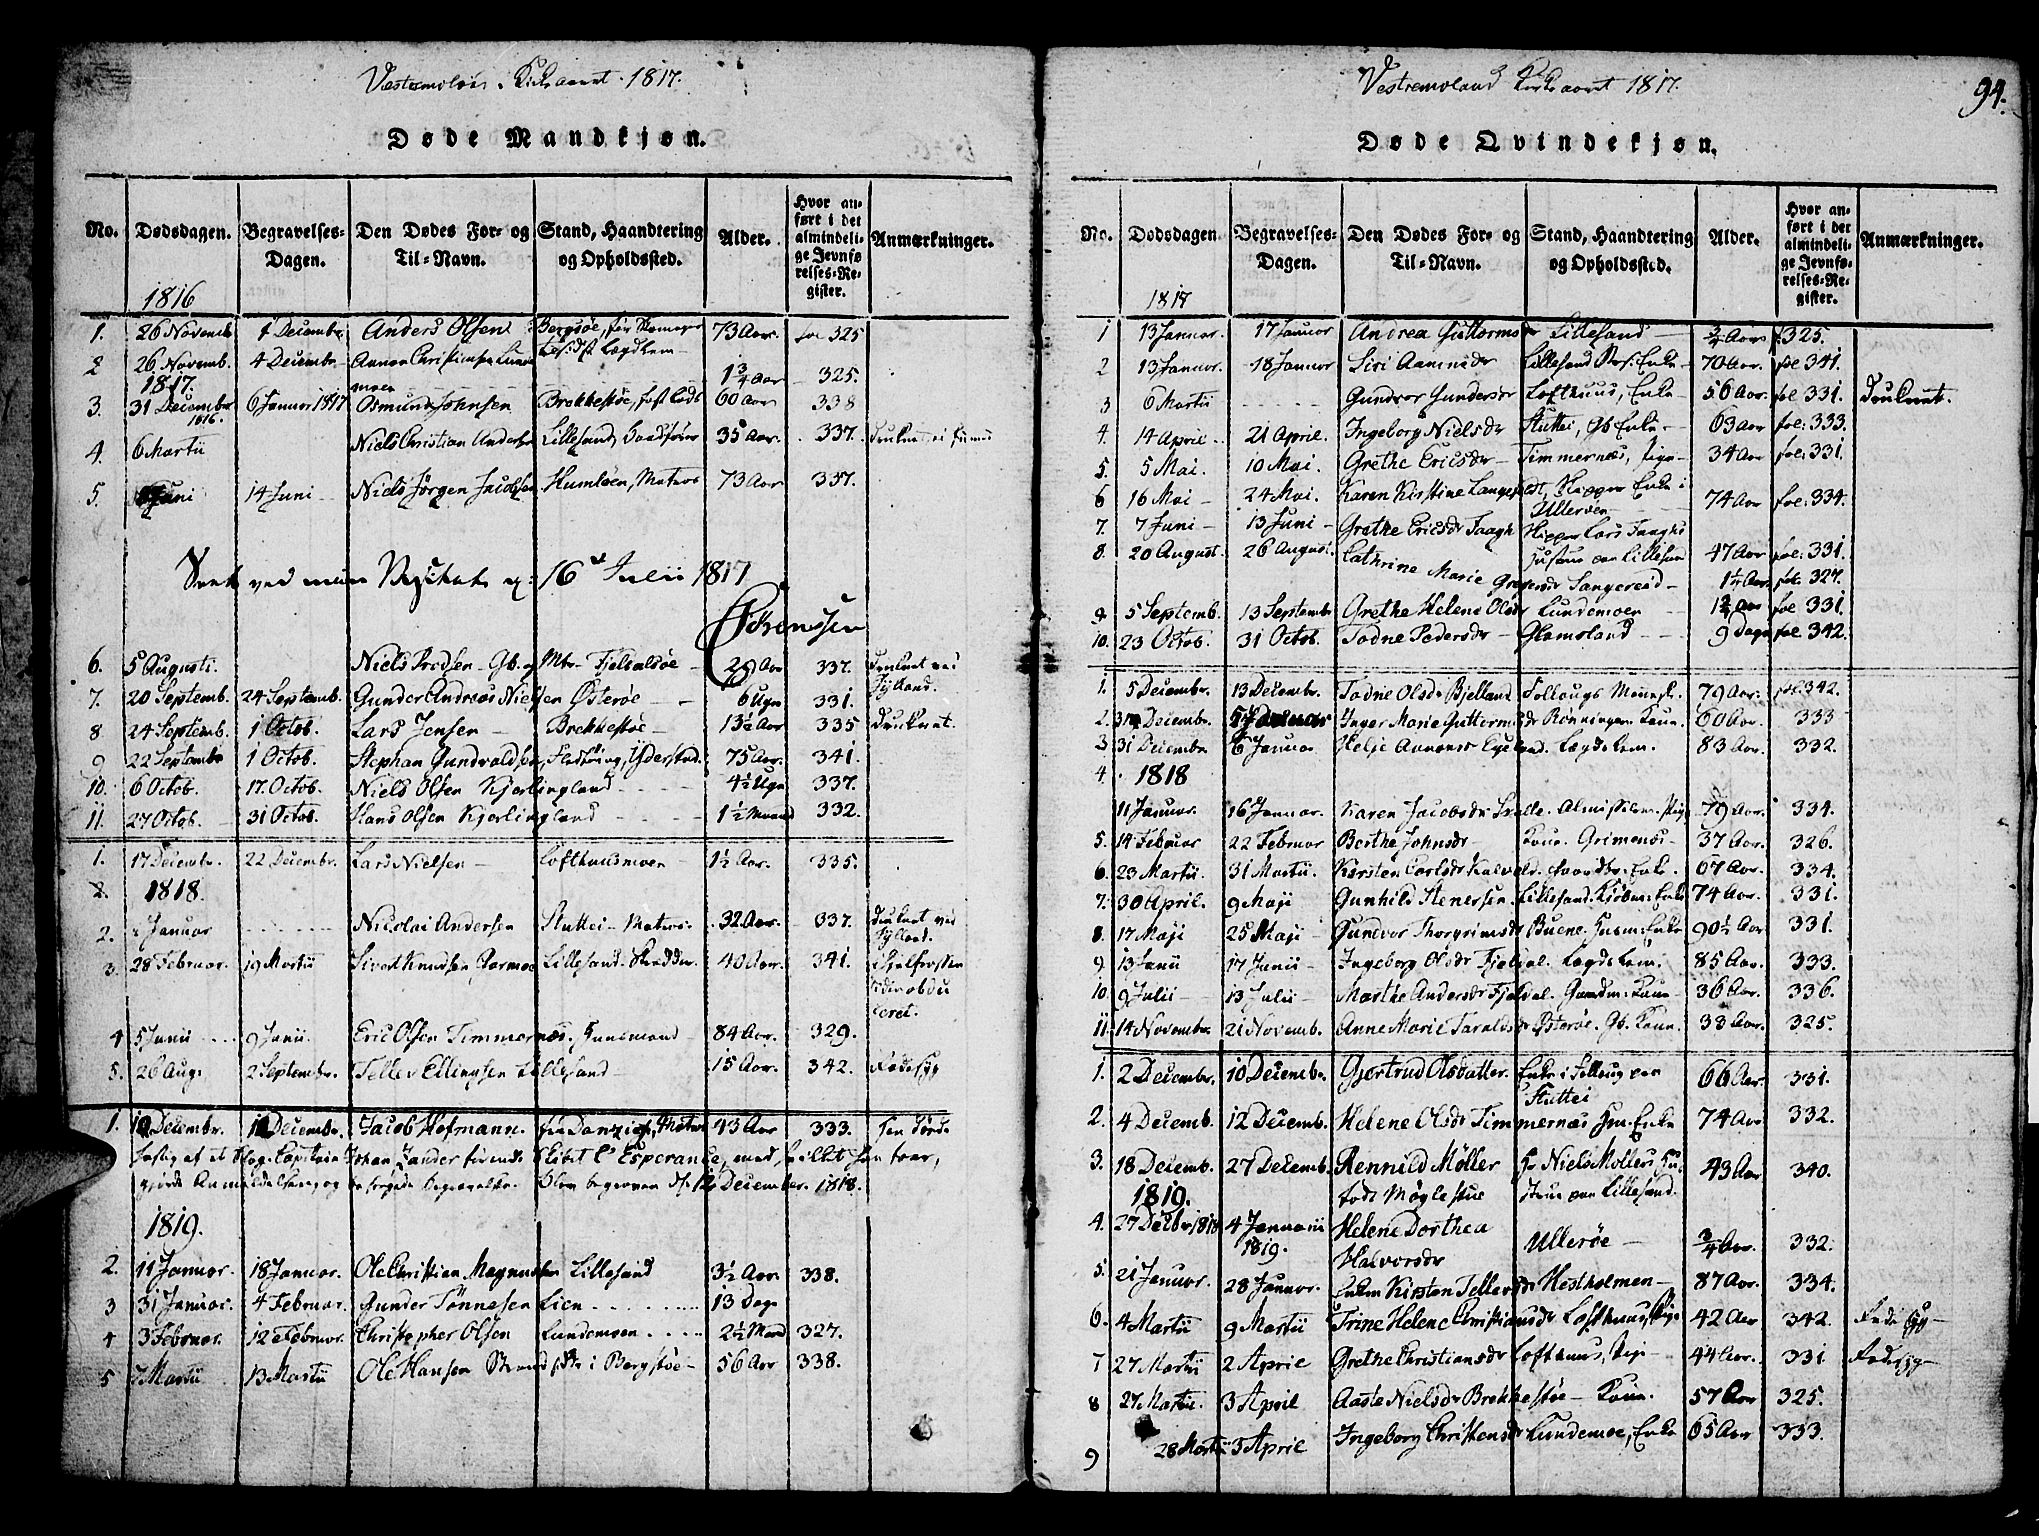 Vestremoland Kirkeaaret 1817.
Døde Mandkjøn.
No. Dødsdagen. Begravelses-Dagen. Den Dødes For- og Til-Navn. Stand, Haandtering og Opholdssted. Alder. Hvor anført i det almindelige Jevnførelses-Register. Anmærkninger.
1816
1. 26 Novemb. 4 Decembr. Anders Olsen Bergsøe, 73 Aar. fol 325
Lægdslem
2 26 Novemb. 4 Decembr. 1 3/4 Aar 325.
1817.
3. 31 December 1816. 6 Januar 1817 Osmund Johnsen Brekkestøe, 60 Aar 338
4. 6 Martii Niels Christian Anders Lillesand, 35 Aar. 337.
5. Juni 14 Juni Niels Jørgen Jacobsen Humløen, Matros 73 Aar 337.
16 Julii 1817
Sörenssen
6. 5 Augusti. Niels Gb. og Mtr. Fjelsalsøe 29 Aar 337. Druknet ved Jylland.
7. 20 Septemb. 24 Septemb. Gunder Andreas Nielsen Østerøe 6 Ugr 331.
8 24 Septemb. 1 Octob. Lars Jensen Brekkestøe 13 1/2 Aar 335 Druknet.
9 22 Septembr 1 Octob. Stephan Gundvaldsen, 75 Aar. 341.
10. 6 Octob. 17. Octob. Niels Olsen Kjerlingland 4 1/2 Ugr 337.
11. 27 Octob. 31 Octob. Hans Olsen Kjerlingland 1 1/2 Maaned 332.
1. 17 Decembr. 22 Decembr. Lars Nielsen Lofthuusmoen 1 1/2 Aar. 335.
2. 1818.
2. Januar Nicolai Andersen Stuttei Matros. 32 Aar. 337. druknet ved Jylland.
3. 28 Februar. 19 Martii Sivert Knudsen Lillesand. Skrædder. 40 Aar. 341.
4 5 Junii 9 Junii. Eric Olsen Timmernæs. Huusmand 84 Aar. 329.
5. 26 Aug. 2 Septembr. Tellev Ellingsen Lillesand 15 Aar. 342. Radesyg
1. 10 Decembr. 12 Decembr. Jacob Hofmann. fra Danzig, Matros 43 Aar 333.
Capitain Johan Zander L'Esperance, med
begravelse. blev begraven d. 12 December. 1818.
1819.
2. 11 Januar. 18 Januar. Ole Christian Magnussen Lillesand 3 1/2 Aar 338.
3 31 Januar. 4 Februar. Gunder Tønnesen Lien 13 Dage
4 3 Februar. 12 Februar. Christopher Olsen Lundemoen 2 1/2 Maaned 327.
5 7 Martii 13 Martii Ole Hansen i Bergstøe 56 Aar 338.
Vestremoland Kirkeaaret 1817.
94.
Døde Qvindekjøn.
No. Dødsdagen Begravelses-Dagen. Den Dødes For- og Til-Navn. Stand, Haandtering og Opholdssted. Alder. Hvor anført i det almindelige Jevnførelses-Register. Anmærkninger.
1817
1 13 Januar. 17 Januar Andrea Guttormsdr Lillesand 3/4 Aar f. 325.
2 13 Januar. 18 Januar Siri Aamundsdr Lillesand Enke 70 Aar. fol 341.
3 6 Martii Gundvor Gundersdr Lofthuus, Enke 56 Aar fol 331. Druknet.
4. 14 April 21 April. Ingeborg Nielsdr Stuttei, Gb. Enke 63 Aar fol: 333.
5. 5 Mai. 10 Mai. Grethe Ericsdr Timmernæs, Pige 34 Aar fol. 331.
6 16 Mai 24 Mai. Karen Kirstine Langfeldt, Skipper Enke i Ulleröen 74 Aar fol. 334.
7. 7 Juni 13 Juni Grethe Ericsdr Faagh Skipper Lars Faaghs Hustrue paa Lillesand 47 Aar fol: 331.
8. 20 August. 26 August. Cathrine Marie Gregersdr Sangereid 1 1/2 Aar. fol. 327.
9. 5 Septemb. 13 Septembr Grethe Helene Olsdr Lundemoen fol 331.
10. 23 Octob. 31 Octob. Todne Pedersdr Glamsland 9 Dage fol. 342.
1. 5 Decembr. 13 Decembr. Todne Olsdr Bjelland Follougs Mennesk. 79 Aar. fol 342.
2. 31 Decembr. Inger Marie Guttormsdr Rønningen. Kone. 60 Aar. 333
3 31 Decembr 6 Januar Helje Aanonsdr Egeland. Lægdslem. 83 Aar. 332.
4. 1818
11 Januar. 16 Januar. Karen Jacobsdr Almisselem. 79 Aar. 334.
5. 14 Februar 22 Februar Berthe Johnsdr Kone. Grimenæs. 37 Aar. 326.
6. 23 Martii. 31 Martii. Kirsten Carlsdr Kalveld. Enke. 67 Aar. 334.
7. 30 April. 9 Maji Gunhild Stenersen. Lillesand. Enke 74 Aar. 331.
8. 17 Maji 25 Maji Gundvor Thorgrimsdr Buene. Huusm: Enke 90 1/2 Aar 331.
9. 13 Junii 17 Junii Ingeborg Olsdr Fjeldal. Lægdslem. 85 Aar. 333.
10. 9 Julii 13 Julii Marthe Andersdr Fjeldal. Gaardm: Kone 36 Aar. 336.
11. 14 Novembr. 21 Novemb. Anne Marie Taraldsdr Østerøe. Gb. Kone. 38 Aar. 325.
1. 2 Decembr. 10 Decembr. Gjertrud Olsdatter. Enke i Folloug paa Stuttei 66 Aar. 331.
2. 4 Decemb. 12 Decemb. Helene Olsdr Timmernæs Hm. Enke 74 Aar. 332.
3. 18 Decemb. 27 Decemb. Rennild Møller fød Møglestue Hr Niels Møllers Hustrue paa Lillesand. 43 Aar 340.
1819.
4. 27 Decbr 1818 4 Januarii 1819. Helene Dorthea Halvorsdr Ullerøe 3/4 Aar. 332.
5. 21 Januar. 28 Januar. Enken Kirsten Tellevsdr Hestholmen 87 Aar. 334.
6. 4 Martii 9 Martii Trine Helene Christiansdr Lofthuus, Pige 42 Aar 342. Radesyg
7 27 Martii 2 April Grethe Christiansdr Lofthuus, Pige 44 Aar. 331 Radesyg
8 27 Martii. 3 April Aaste Nielsdr Brekkestøe Kone. 57 Aar 325.
9 28 Martii 3 April Ingeborg Christensdr Lundemoe, Enke 65 Aar 333.